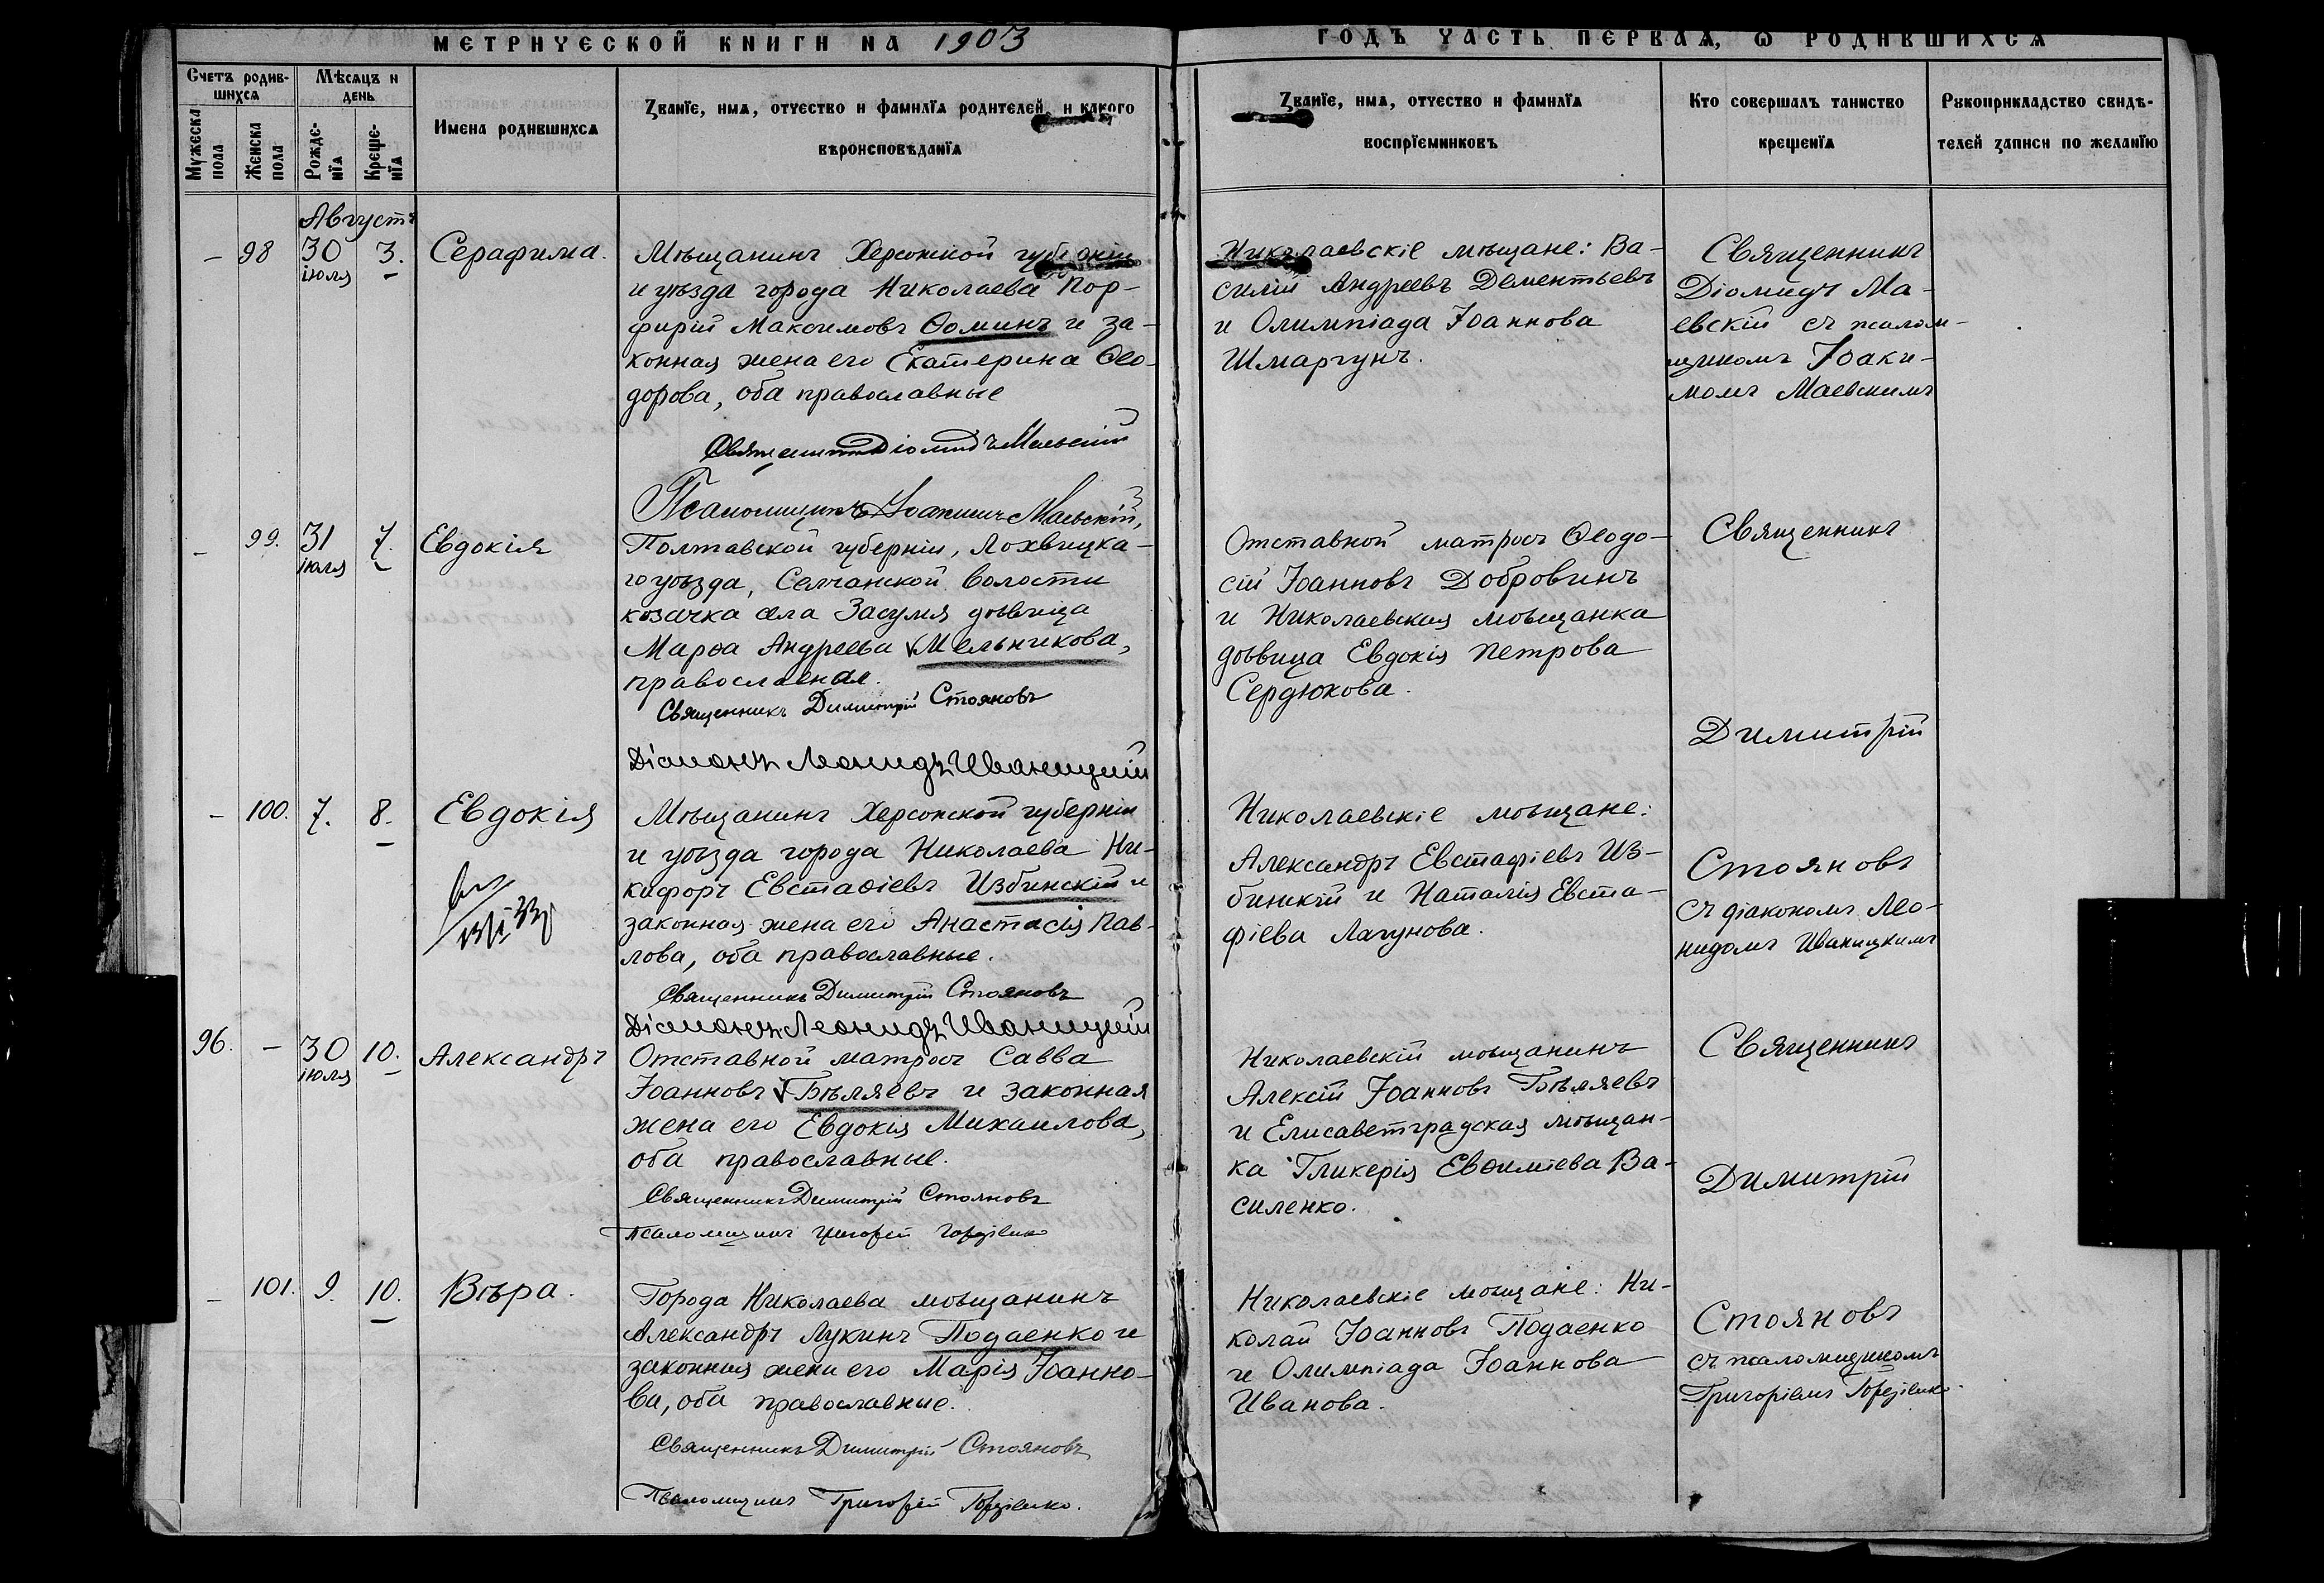 МЕТРИЧЕСКОЙ КНИГИ НА 1903
Счетъ родив-
шихся
Мѣсяцъ и
день
Мужеска
пола
Женска
пола
Рожде-
нія
Креще-
нія
Имена родившихся
Званіе, имя, отчество и фамилія родителей, и какого
вѣроисповѣданія
Августъ
– 98 30 3. Серафима.
іюля
Мѣщанинъ Херсонской губерніи
и уѣзда города Николаева Пор-
фирій Максимовъ Ѳоминъ и за-
конная жена его Екатерина Ѳео-
дорова, оба православные
Священникъ Діомидъ Маевскій
Псаломщикъ Іоакимъ Маевскій,
– 99. 31 7. Евдокія
іюля
Полтавской губерніи, Лохвицка-
го уѣзда, Сенчанской волости
козачка села Засулья дѣвица
Марѳа Андреева Мельникова,
православная.
Священникъ Димитрій Стояновъ
Діаконъ Леонидъ Иваницкій
– 100. 7. 8. Евдокія
Мѣщанинъ Херсонской губерніи
и уѣзда города Николаева Ни-
кифоръ Евстаѳіевъ Избинскій и
законная жена его Анастасія Пав-
лова, оба православные.
Священникъ Димитрій Стояновъ
Діаконъ Леонидъ Иваницкій
96. – 30 10. Александръ
іюля
Отставной матросъ Савва
Іоанновъ Бѣляевъ и законная
жена его Евдокія Михаилова,
оба православные.
Священникъ Димитрій Стояновъ
Псаломщикъ Григорій
– 101. 9. 10. Вѣра.
Города Николаева мѣщанинъ
Александръ Лукинъ Подаенко и
законная жена его Марія Іоанно-
ва, оба православные.
Священникъ Димитрій Стояновъ
Псаломщикъ Григорій
ГОДЪ ЧАСТЬ ПЕРВАЯ, Ѡ РОДИВШИХСЯ
Званіе, имя, отчество и фамилія
воспріемниковъ
Кто совершалъ таинство
крещенія
Рукоприкладство свидѣ-
телей записи по желанію
Николаевскіе мѣщане: Ва-
силій Андреевъ Дементьевъ
и Олимпіада Іоаннова
Шмаргунъ.
Священникъ
Діомидъ Ма-
евскій съ псалом-
щикомъ Іоаки-
момъ Маевскимъ
Отставной матросъ Ѳеодо-
сій Іоанновъ Добровинъ
и Николаевская мѣщанка
дѣвица Евдокія Петрова
Сердюкова.
Священникъ
Димитрій
Николаевскіе мѣщане:
Александръ Евстафіевъ Из-
бинскій и Наталія Евста-
фіева Лагунова.
Стояновъ
съ діакономъ Лео-
нидомъ Иваницкимъ
Николаевскій мѣщанинъ
Алексій Іоанновъ Бѣляевъ
и Елисаветградская мѣщан-
ка Гликерія Евѳиміева Ва-
силенко.
Священникъ
Димитрій
Николаевскіе мѣщане: Ни-
колай Іоанновъ Подаенко
и Олимпіада Іоаннова
Иванова.
Стояновъ
съ псаломщикомъ
Григоріемъ